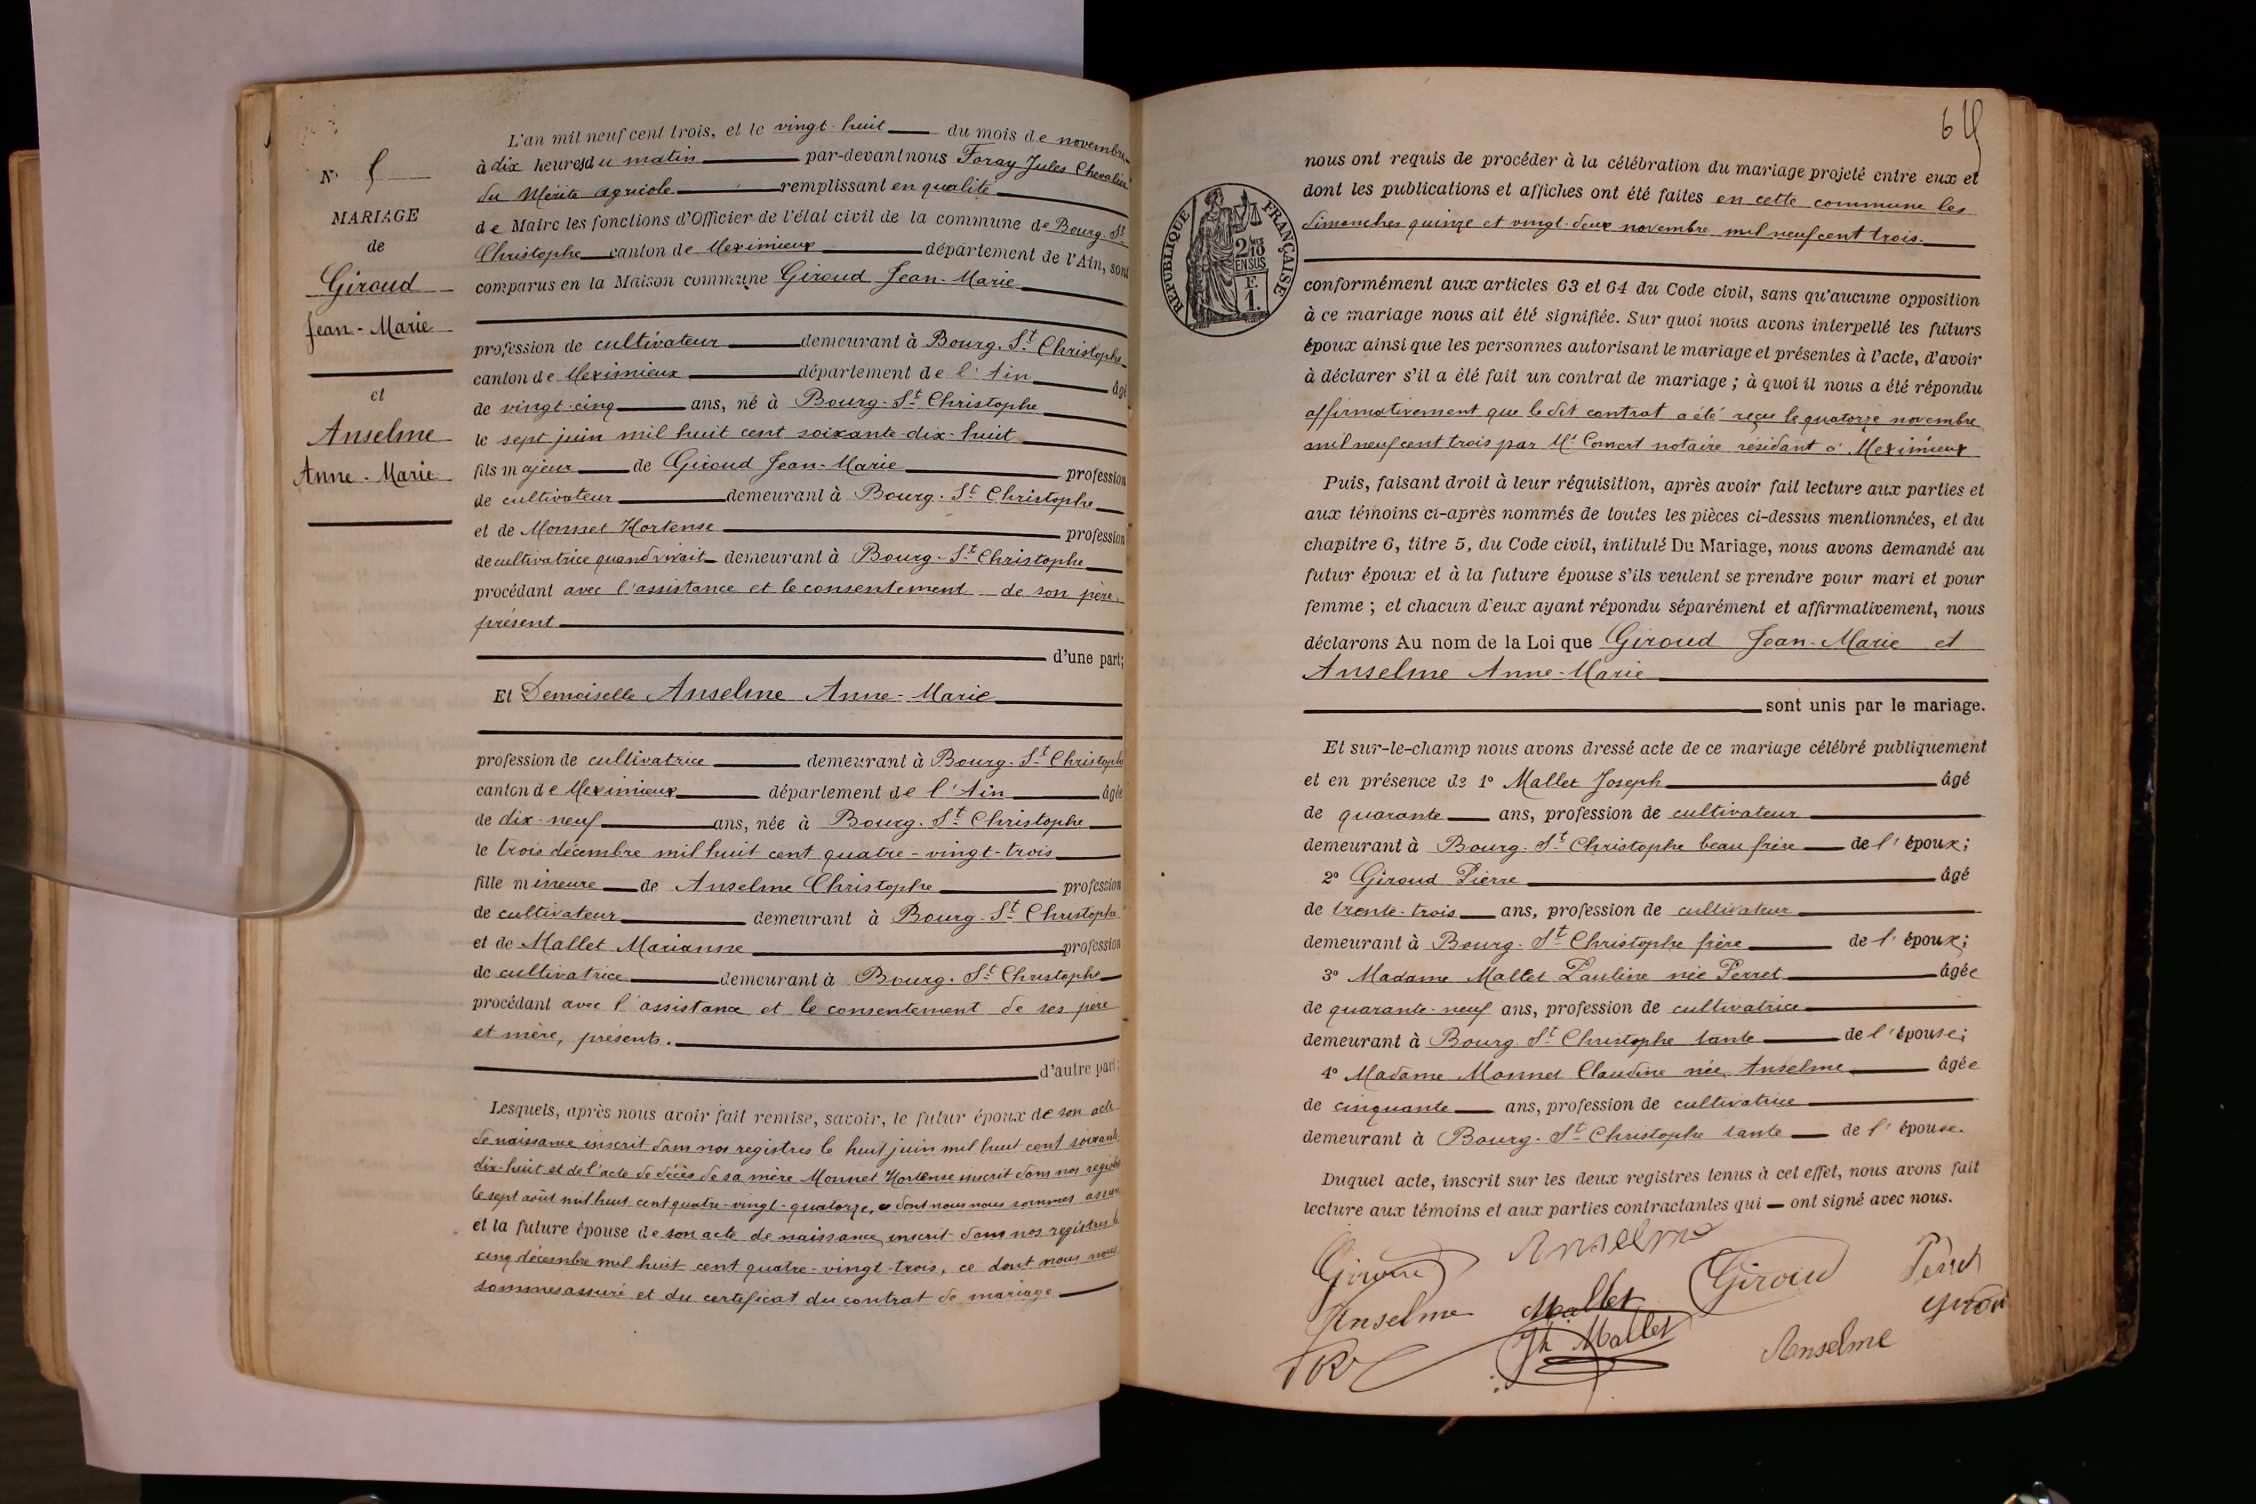 L'an mil neuf cent trois, et le vingt-huit du mois de novembre
à dix heures du matin par-devant nous Foray Jules Chevalier
du Mérite agricole remplissant en qualité
de Maire les fonctions d'Officier de l'état civil de la commune de Bourg-St
Christophe canton de Meximieux département de l'Ain, sont
comparus en la Maison commune Giroud Jean-Marie
profession de cultivateur demeurant à Bourg-St Christophe
canton de Meximieux département de l'Ain âgé
de vingt-cinq ans, né à Bourg-St Christophe
le sept juin mil huit cent soixante-dix-huit
fils majeur de Giroud Jean-Marie profession
de cultivateur demeurant à Bourg-St Christophe
et de Monnet Hortense profession
de cultivatrice quand vivait demeurant à Bourg-St Christophe
procédant avec l'assistance et le consentement de son père,
présent
d'une part;
Et Demoiselle Anselme Anne-Marie
profession de cultivatrice demeurant à Bourg-St Christophe
canton de Meximieux département de l'Ain âgée
de dix-neuf ans, née à Bourg-St Christophe
le trois décembre mil huit cent quatre-vingt-trois
fille mineure de Anselme Christophe profession
de cultivateur demeurant à Bourg-St Christophe
et de Mallet Marianne profession
de cultivatrice demeurant à Bourg-St Christophe
procédant avec l'assistance et le consentement de ses père
et mère, présents.
d'autre part;
Lesquels, après nous avoir fait remise, savoir, le futur époux de son acte
de naissance inscrit dans nos registres le huit juin mil huit cent soixante-
dix-huit et de l'acte de décès de sa mère Monnet Hortense inscrit dans nos registres
le sept août mil huit cent quatre-vingt-quatorze, ce dont nous nous sommes assuré
et la future épouse de son acte de naissance inscrit dans nos registres le
cinq décembre mil huit cent quatre-vingt-trois, ce dont nous nous
sommes assuré et du certificat du contrat de mariage
N° 5
MARIAGE
de
Giroud
Jean-Marie
et
Anselme
Anne-Marie
RÉPUBLIQUE FRANÇAISE
2/10
EN SUS
F.
1.
nous ont requis de procéder à la célébration du mariage projeté entre eux et
dont les publications et affiches ont été faites en cette commune les
dimanches quinze et vingt-deux novembre mil neuf cent trois.
conformément aux articles 63 et 64 du Code civil, sans qu'aucune opposition
à ce mariage nous ait été signifiée. Sur quoi nous avons interpellé les futurs
époux ainsi que les personnes autorisant le mariage et présentes à l'acte, d'avoir
à déclarer s'il a été fait un contrat de mariage ; à quoi il nous a été répondu
affirmativement que le dit contrat a été reçu le quatorze novembre
mil neuf cent trois par Me notaire résidant à Meximieux
Puis, faisant droit à leur réquisition, après avoir fait lecture aux parties et
aux témoins ci-après nommés de toutes les pièces ci-dessus mentionnées, et du
chapitre 6, titre 5, du Code civil, intitulé Du Mariage, nous avons demandé au
futur époux et à la future épouse s'ils veulent se prendre pour mari et pour
femme ; et chacun d'eux ayant répondu séparément et affirmativement, nous
déclarons Au nom de la Loi que Giroud Jean-Marie et
Anselme Anne-Marie
sont unis par le mariage.
Et sur-le-champ nous avons dressé acte de ce mariage célébré publiquement
et en présence de 1° Mallet Joseph âgé
de quarante ans, profession de cultivateur
demeurant à Bourg-St Christophe beau frère de l'époux;
2° Giroud Pierre âgé
de trente-trois ans, profession de cultivateur
demeurant à Bourg-St Christophe frère de l'époux;
3° Madame Mallet Pauline née Perret âgée
de quarante-neuf ans, profession de cultivatrice
demeurant à Bourg-St Christophe tante de l'épouse;
4° Madame Monnet Claudine née Anselme âgée
de cinquante ans, profession de cultivatrice
demeurant à Bourg-St Christophe tante de l'épouse.
Duquel acte, inscrit sur les deux registres tenus à cet effet, nous avons fait
lecture aux témoins et aux parties contractantes qui ont signé avec nous.
Giroud Anselme Giroud Perret
Anselme Mallet
Jh Mallet Anselme